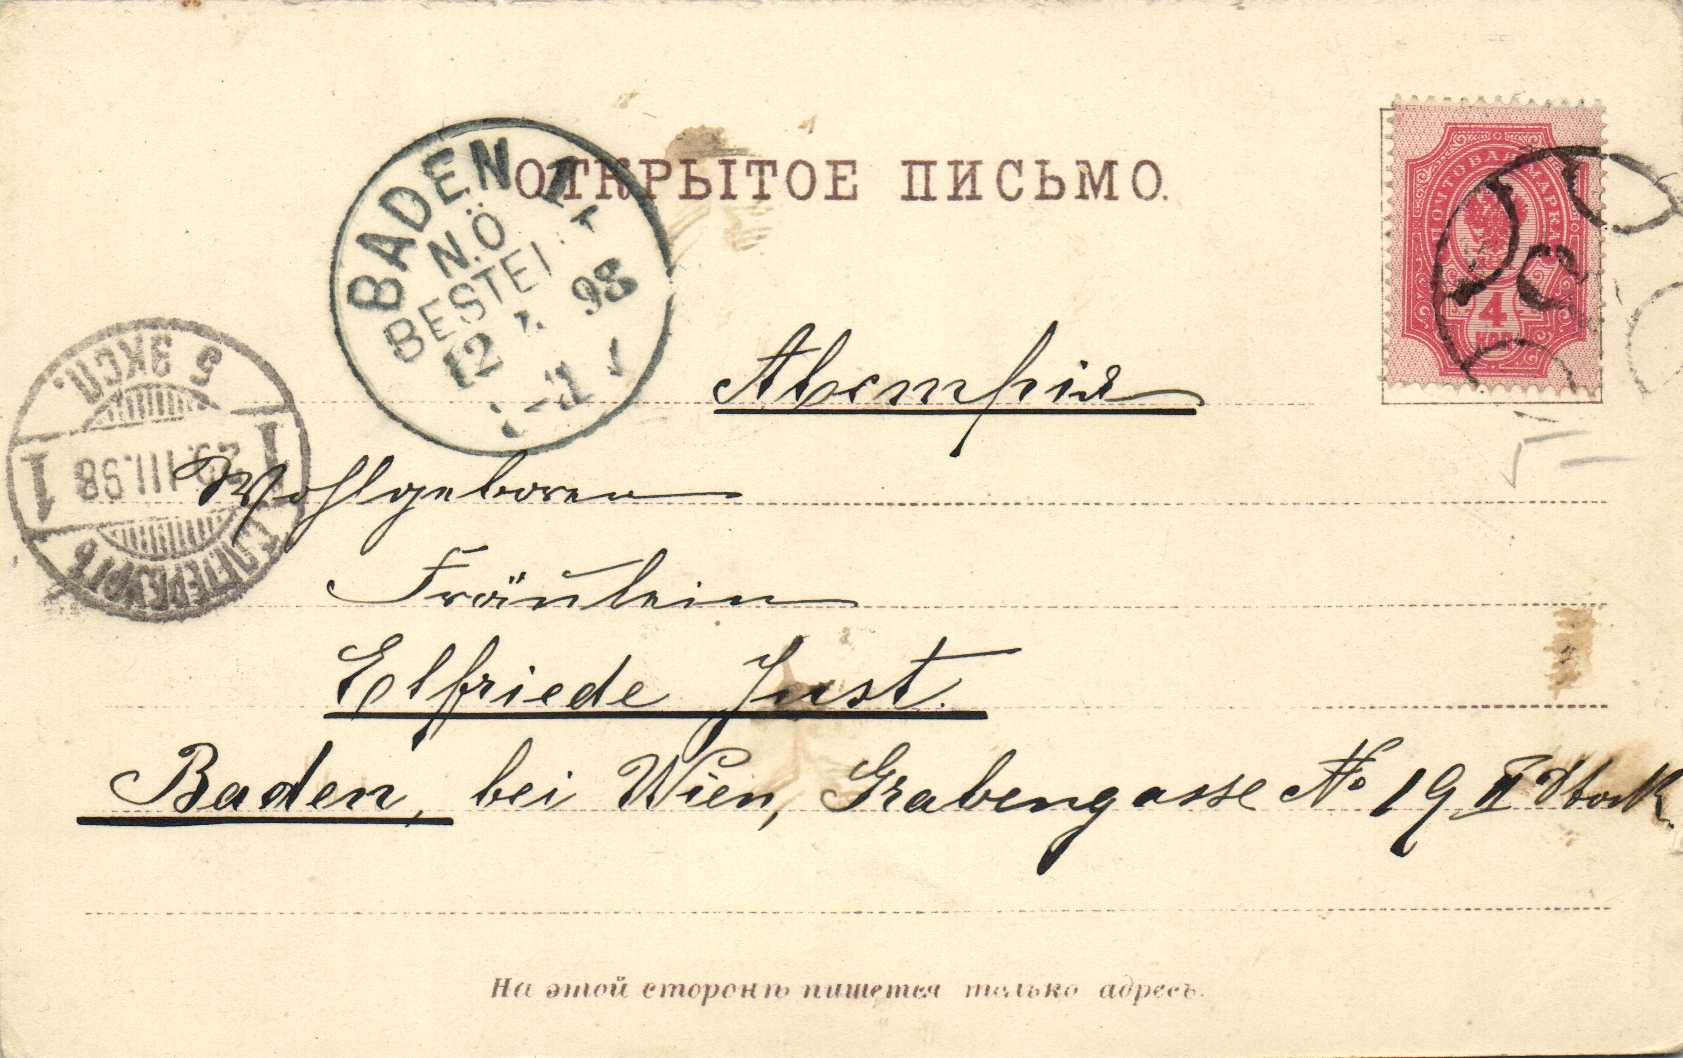 ОТКРЫТОЕ ПИСЬМО.
ПОЧТОВАЯ МАРКА
4
КОП
BADEN 1
N.Ö.
BESTELLT
12 98
5 ЭКСП.
1 29.III.98 1
С.ПЕТЕРБУРГЪ
Австрія
Wohlgeboren
Fräulein
Elfriede Just.
Baden, bei Wien, Grabengasse No 19 II Stock.
На этой сторонѣ пишется только адресъ.